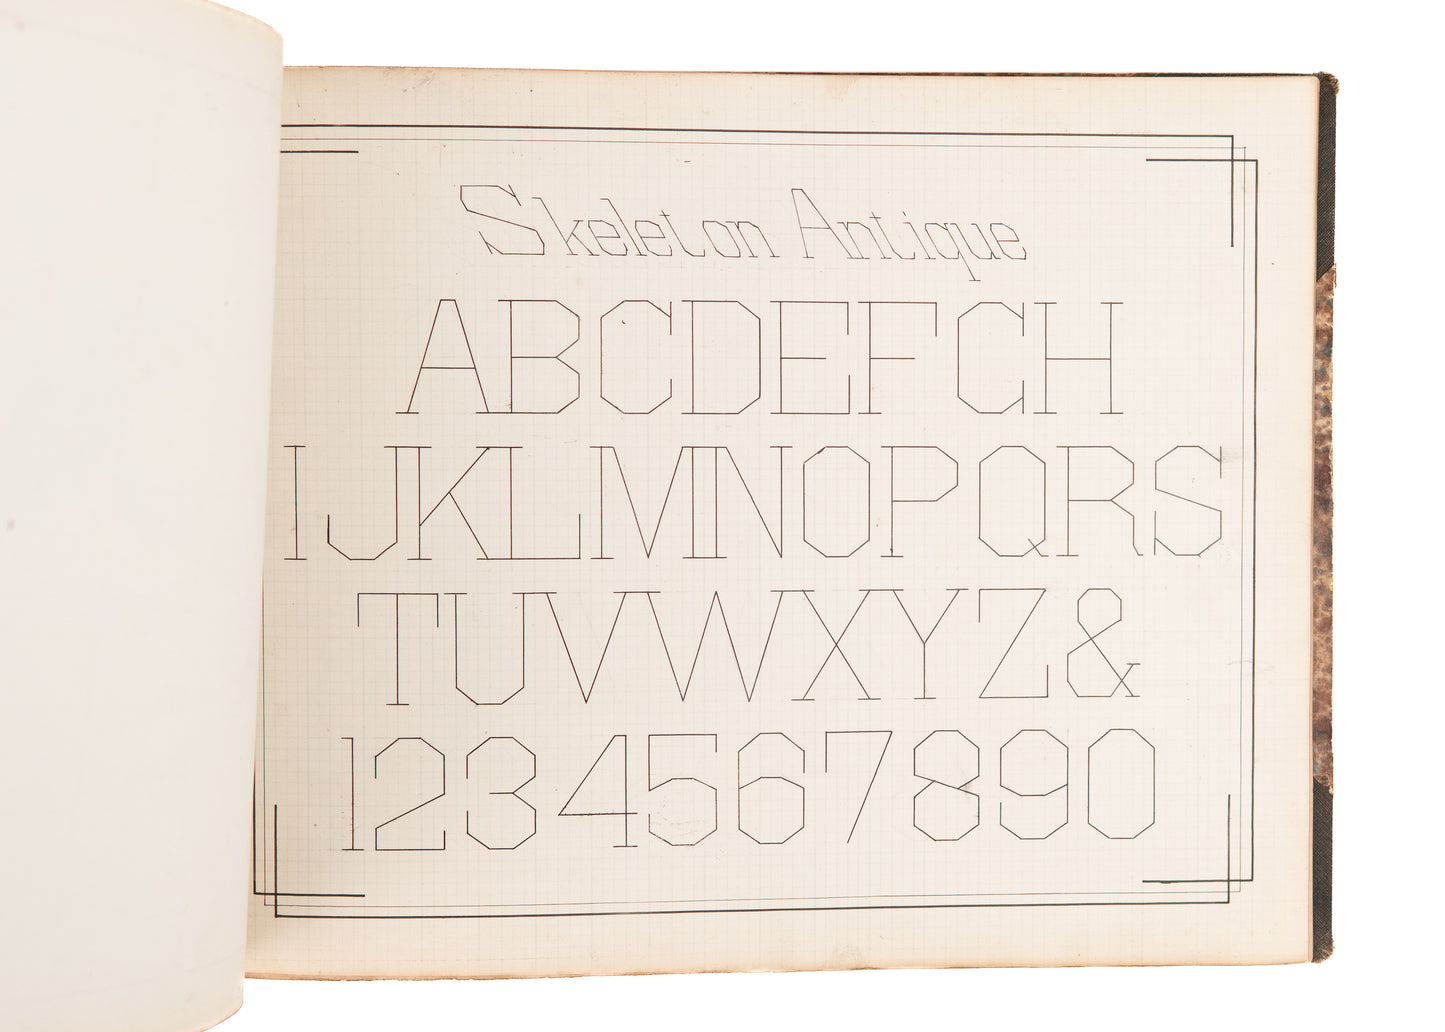 Skeleton Antique
ABCDEFGH
IJKLMNOPQRS
TUVWXYZ&
1234567890